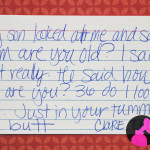 son looked at me and sa
m are you old? I sai
t really He said how
are you? 36 do I loo
Just in your tumm
butt CLAIRE